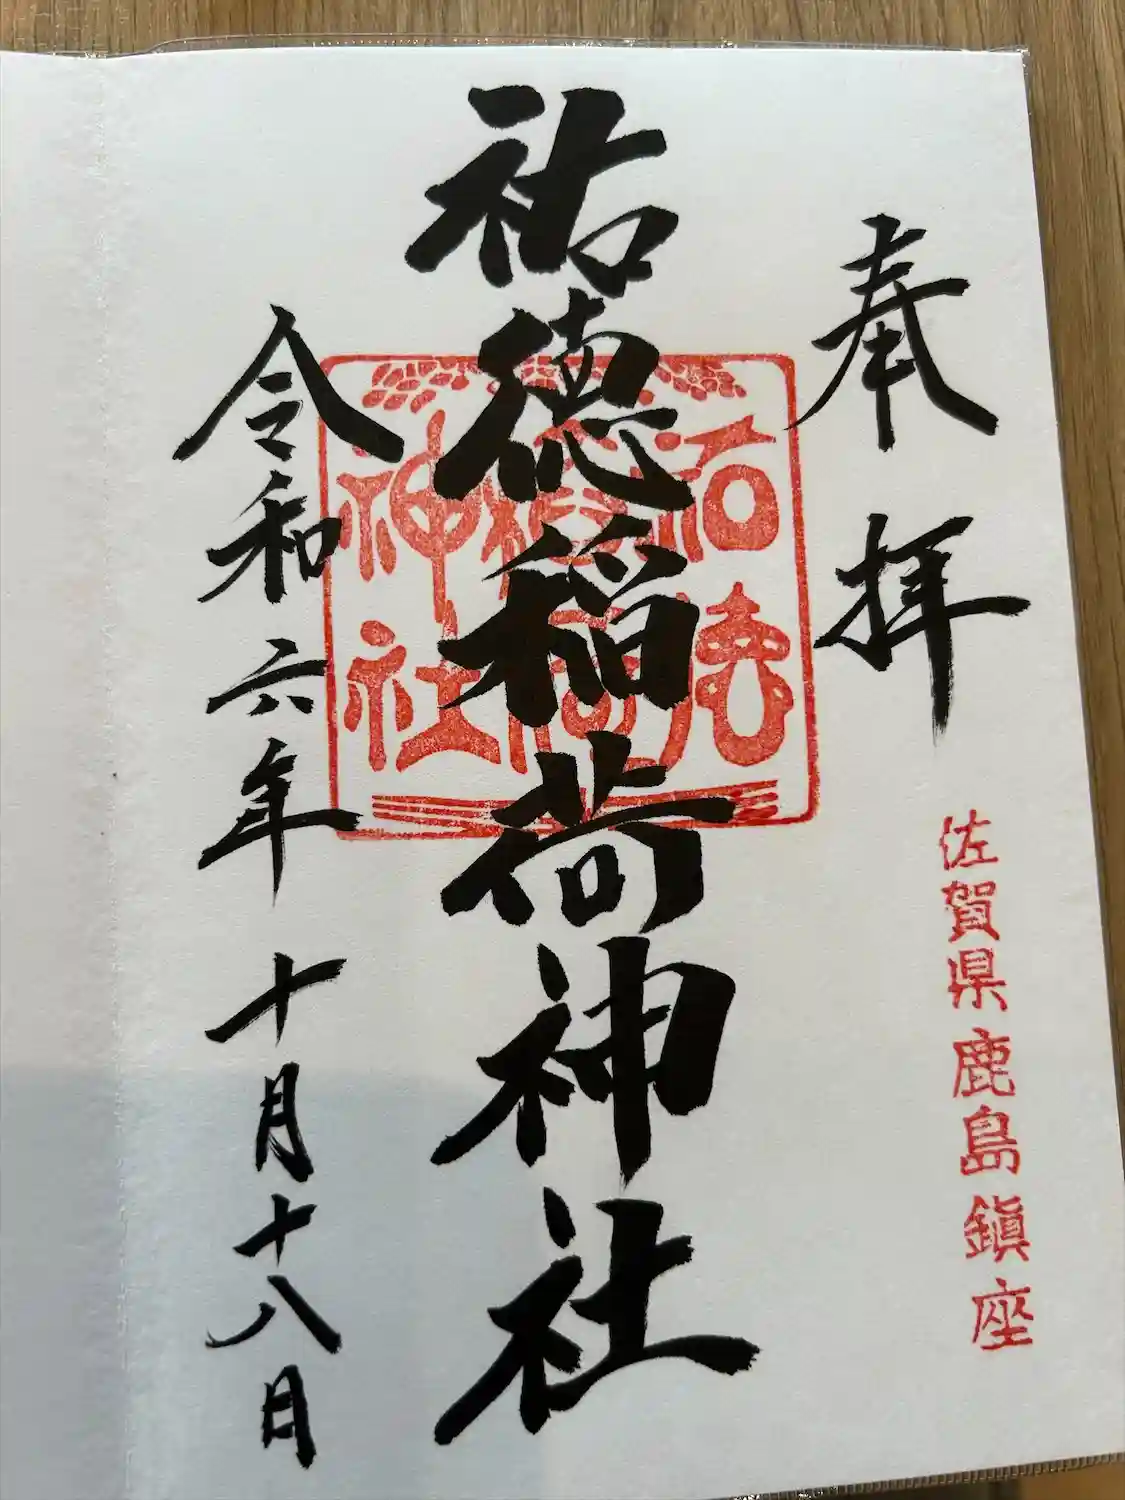 奉拝
佐賀県鹿島鎮座
祐徳稲荷神社
祐徳稲荷神社
令和六年十月十八日